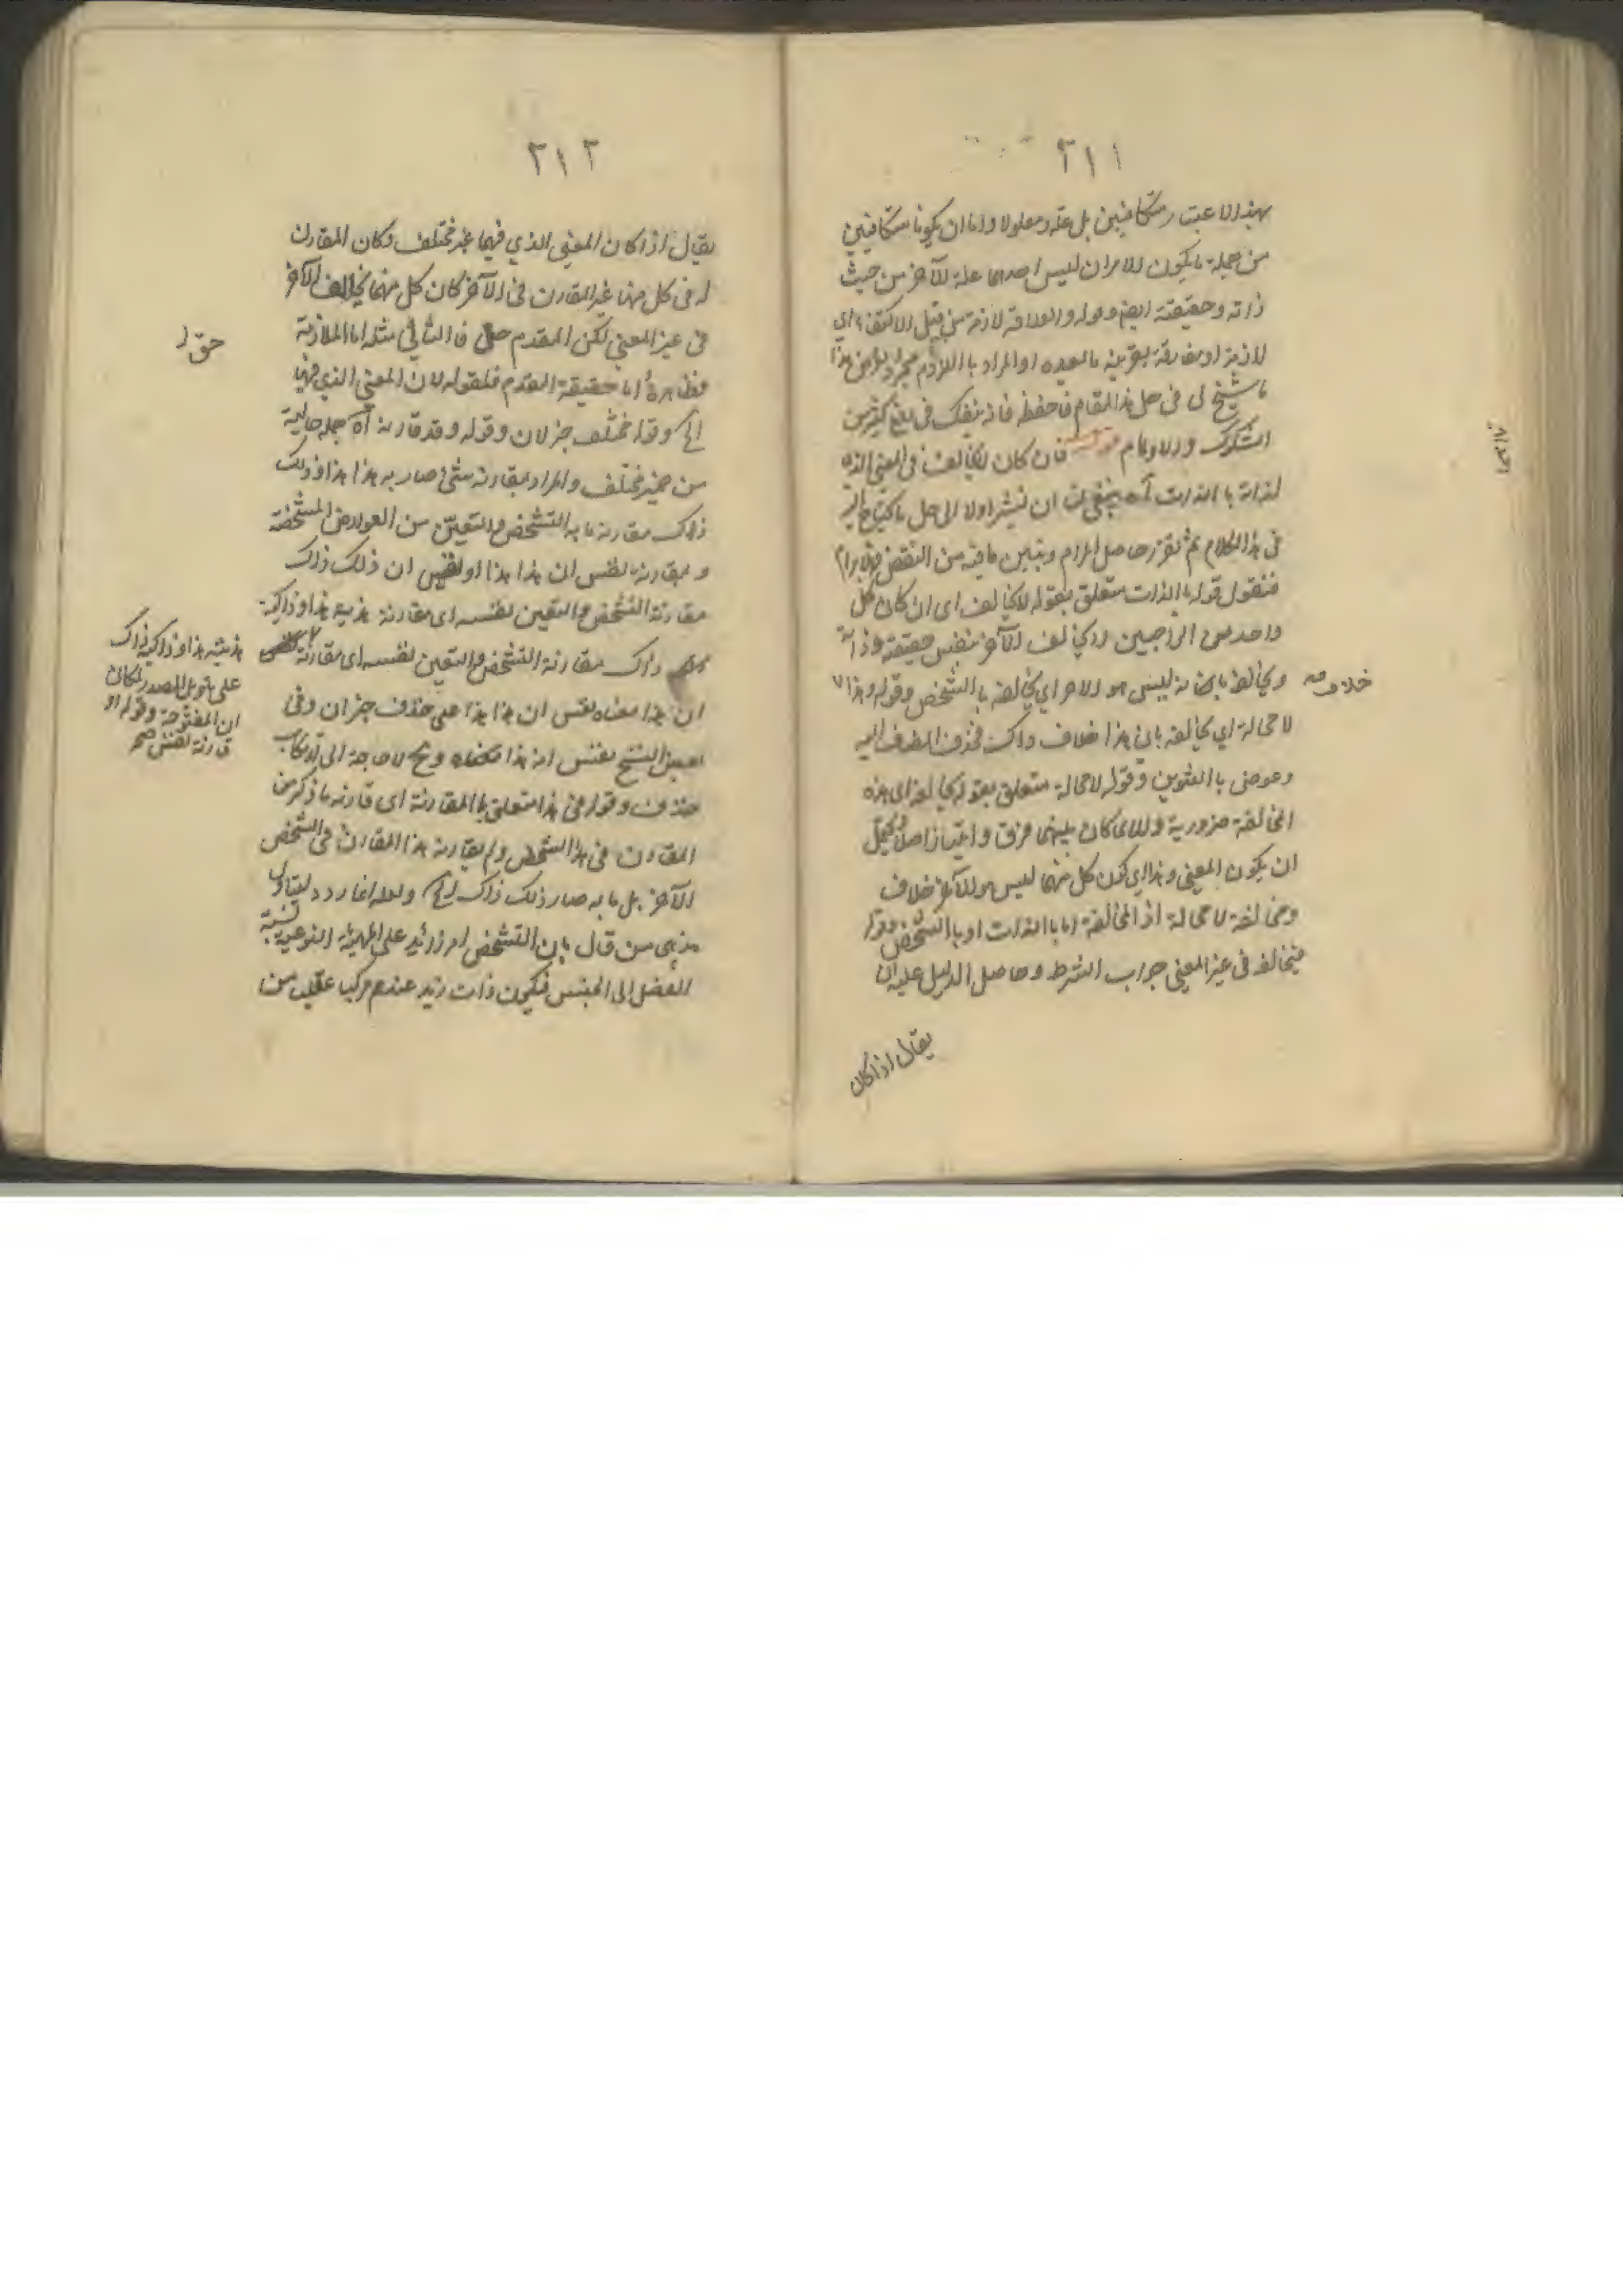 ٢١١
بهذا الاعتبار متكافيين بل علة ومعلولا واما ان يكونا متكافيين
من جملة ما يكون الامران ليس احدهما علة للآخر من حيث
ذاته وحقيقته ايضا وقوله والعلاقة لازمة من قبيل الاكتفاء اي
لازمة او مفارقة بقرينة ما بعده او المراد باللازم مجرد هذا
ما سنح لي في حل هذا المقام فاحفظه فانه ينفعك في دفع كثير من
الشكوك والاوهام قوله فان كان لا يخالف في المعنى الذي
لذاته بالذات آه ينبغي ان نشير اولا الى حل ما يحتاج اليه
في هذا الكلام ثم نقرر حاصل المرام ونبين ما فيه من النقض والابرام
فنقول قوله بالذات متعلق بقوله لا يخالف اى ان كان كل
واحد من الواجبين لا يخالف الآخر بنفس حقيقته وذاته
ويخالفه بانه ليس هو الآخر اي يخالفه بالتشخص وقوله وهذا
خلاف صه
لا محالة اي يخالفه بان هذا خلاف ذاك فحذف المضاف اليه
وعوض بالتنوين وقوله لا محالة متعلق بقوله يخالفه اى هذه
المخالفة ضرورية والا لما كان بينهما فرق وامتياز اصلا ويحتمل
ان يكون المعنى وهذا اي كون كل منهما ليس هو الآخر خلاف
ومخالفة لا محالة اذ المخالفة اما بالذات او بالتشخص وقوله
فيخالفه في غير المعنى جواب الشرط وحاصل الدليل عليه ان
يقال اذا كان
٢١٢
يقال اذا كان المعنى الذي فيهما غير مختلف وكان المقارن
له في كل منهما غير المقارن في الآخر كان كل منهما يخالف الآخر
في غير المعنى لكن المقدم حق فالتالي مثله اما الملازمة
حق ر
فظاهرة اما حقيقة المقدم فلقوله لان المعنى الذي فيهما
الخ وقوله مختلف خبر لان وقوله وقد قارنه آه جملة حالية
من ضمير مختلف والمراد بمقارنة شئ صار به هذا هذا وذلك
ذاك مقارنة ما به التشخص والتعين من العوارض المشخصة
وبمقارنة نفس ان هذا هذا او نفس ان ذلك ذاك
مقارنة التشخص والتعين نفسه اى مقارنة هذية هذا وذاكية
ذاك مقارنة التشخص والتعين نفسه اى مقارنة
هذيته هذا وذاكية ذاك
على تاويل المصدر لمكان
ان المفتوحة وقوله او
قارنه نفس صح
ان هذا معناه نفس ان هذا هذا على حذف خبر ان وفي
بعض النسخ نفس انه هذا وح لا حاجة الى ارتكاب
حذف وقوله في هذا متعلق بالمقارنة اى قارنه ما ذكر من
المقارن في هذا الشخص ولم يقارنه هذا المقارن في الشخص
الآخر بل ما به صار ذلك ذاك الخ ولعله انما ردد ليتناول
مذهب من قال بان التشخص امر زائد على المهية النوعية نسبة
الفصل الى الجنس فيكون ذات زيد عندهم مركب عقلي من